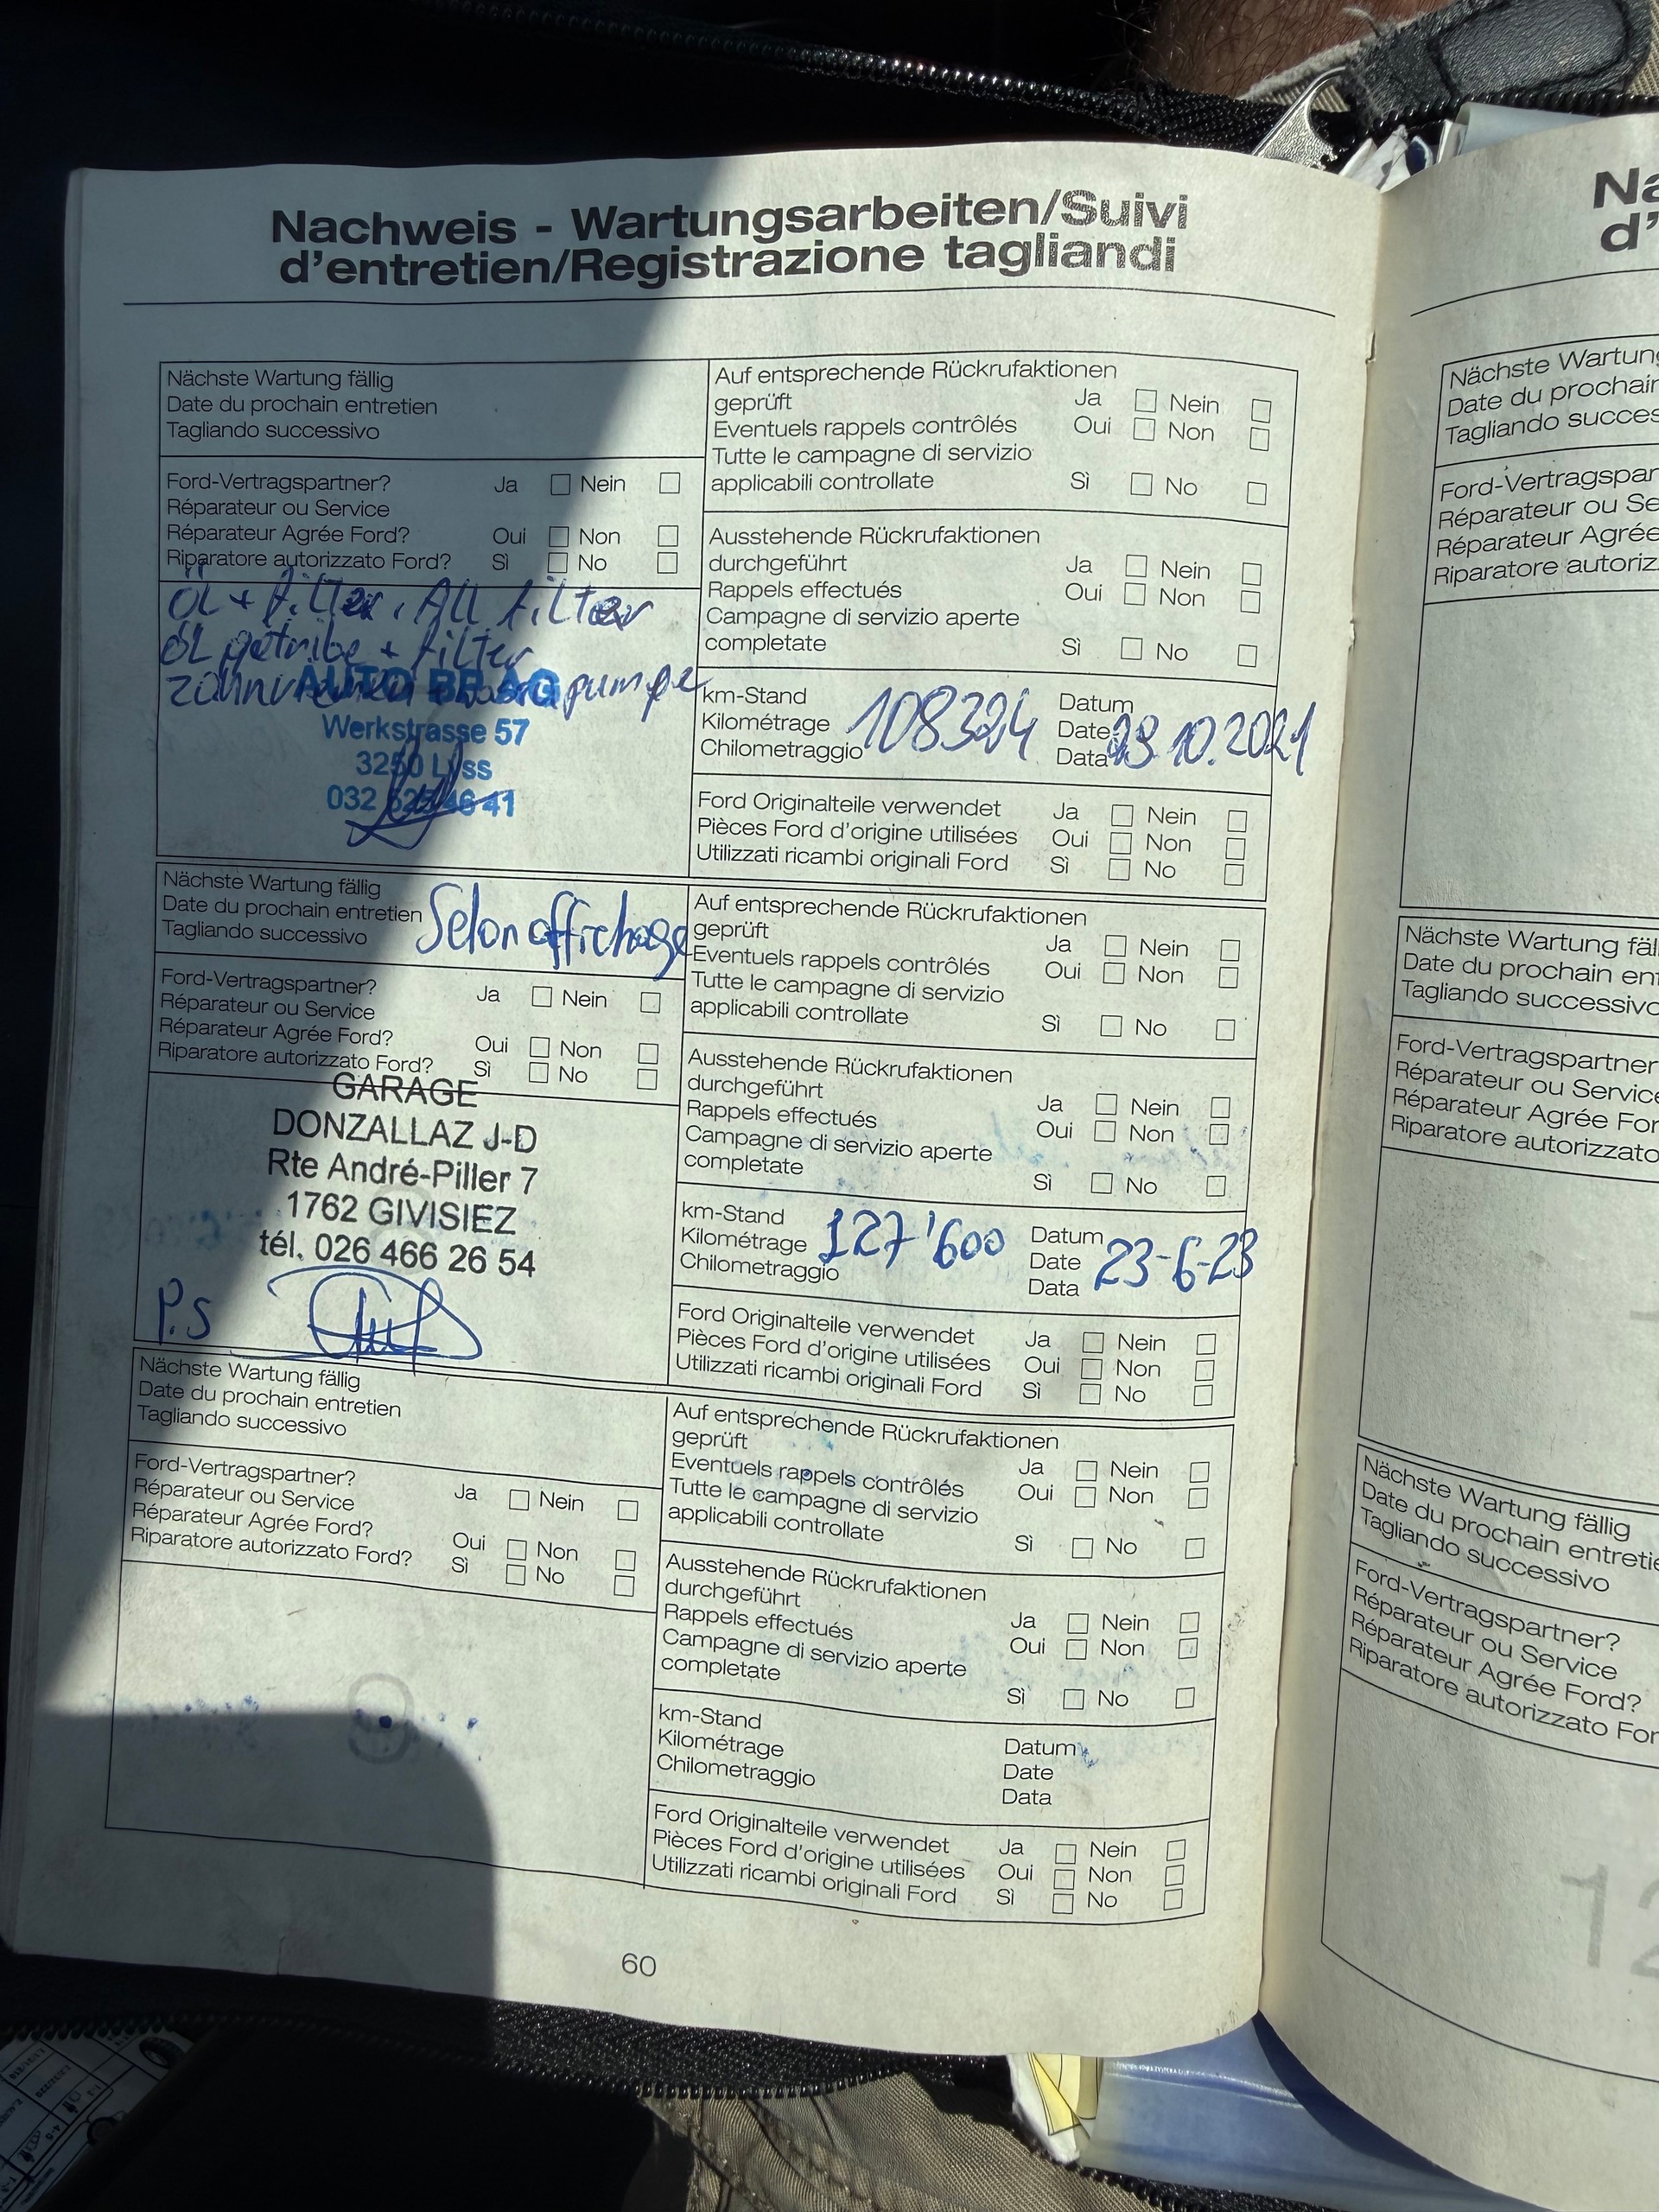 Nachweis - Wartungsarbeiten/Suivi
d'entretien/Registrazione tagliandi
Nächste Wartung fällig
Date du prochain entretien
Tagliando successivo
Ford-Vertragspartner? Ja Nein
Réparateur ou Service
Réparateur Agrée Ford? Oui Non
Riparatore autorizzato Ford? Sì No
ÖL + Filter, All Filter
ÖL getribe + Filter
pumpe
AUTO BR AG
Werkstrasse 57
3250 Lyss
032 46 41
Auf entsprechende Rückrufaktionen
geprüft Ja Nein
Eventuels rappels contrôlés Oui Non
Tutte le campagne di servizio
applicabili controllate Sì No
Ausstehende Rückrufaktionen
durchgeführt Ja Nein
Rappels effectués Oui Non
Campagne di servizio aperte
completate Sì No
km-Stand Datum
Kilométrage 108324 Date 23.10.2021
Chilometraggio Data
Ford Originalteile verwendet Ja Nein
Pièces Ford d'origine utilisées Oui Non
Utilizzati ricambi originali Ford Sì No
Nächste Wartung fällig
Date du prochain entretien Selon affichage
Tagliando successivo
Ford-Vertragspartner? Ja Nein
Réparateur ou Service
Réparateur Agrée Ford? Oui Non
Riparatore autorizzato Ford? Sì No
GARAGE
DONZALLAZ J-D
Rte André-Piller 7
1762 GIVISIEZ
tél. 026 466 26 54
P.S
Auf entsprechende Rückrufaktionen
geprüft Ja Nein
Eventuels rappels contrôlés Oui Non
Tutte le campagne di servizio
applicabili controllate Sì No
Ausstehende Rückrufaktionen
durchgeführt Ja Nein
Rappels effectués Oui Non
Campagne di servizio aperte
completate Sì No
km-Stand Datum
Kilométrage 127'600 Date 23-6-23
Chilometraggio Data
Ford Originalteile verwendet Ja Nein
Pièces Ford d'origine utilisées Oui Non
Utilizzati ricambi originali Ford Sì No
Nächste Wartung fällig
Date du prochain entretien
Tagliando successivo
Ford-Vertragspartner? Ja Nein
Réparateur ou Service
Réparateur Agrée Ford? Oui Non
Riparatore autorizzato Ford? Sì No
9
Auf entsprechende Rückrufaktionen
geprüft Ja Nein
Eventuels rappels contrôlés Oui Non
Tutte le campagne di servizio
applicabili controllate Sì No
Ausstehende Rückrufaktionen
durchgeführt Ja Nein
Rappels effectués Oui Non
Campagne di servizio aperte
completate Sì No
km-Stand Datum
Kilométrage Date
Chilometraggio Data
Ford Originalteile verwendet Ja Nein
Pièces Ford d'origine utilisées Oui Non
Utilizzati ricambi originali Ford Sì No
60
Na
d'
Nächste Wartung
Date du prochain
Tagliando succes
Ford-Vertragspar
Réparateur ou Se
Réparateur Agrée
Riparatore autoriz
Nächste Wartung fäl
Date du prochain en
Tagliando successivo
Ford-Vertragspartner
Réparateur ou Service
Réparateur Agrée For
Riparatore autorizzato
Nächste Wartung fällig
Date du prochain entretie
Tagliando successivo
Ford-Vertragspartner?
Réparateur ou Service
Réparateur Agrée Ford?
Riparatore autorizzato For
12